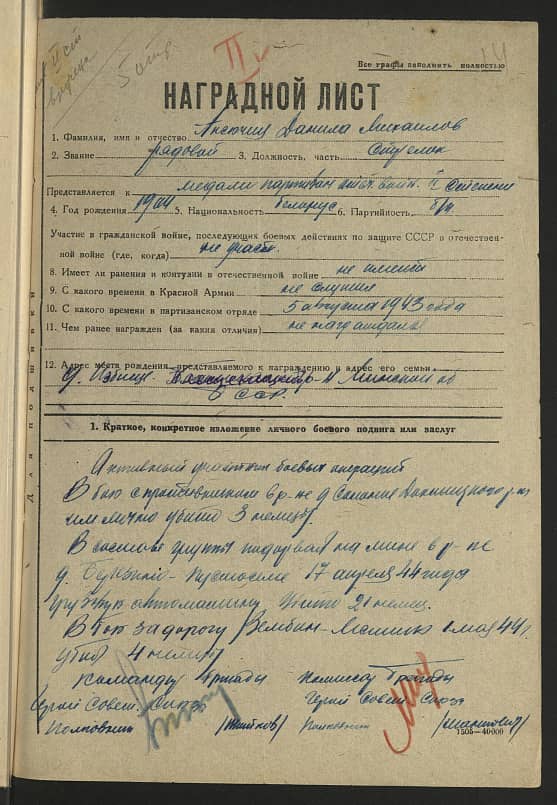 II
5 отр.
Все графы заполнить полностью
НАГРАДНОЙ ЛИСТ
1. Фамилия, имя и отчество Аксючиц Данила Михайлов
2. Звание рядовой 3. Должность, часть Стрелок
Представляется к медали партизан отеч. войн. II степени
4. Год рождения 1904 5. Национальность белорус 6. Партийность б/п
Участие в гражданской войне, последующих боевых действиях по защите СССР в отечествен-
ной войне (где, когда) не участ.
8. Имеет ли ранения и контузии в отечественной войне не имеет
9. С какого времени в Красной Армии не служил
10. С какого времени в партизанском отряде 5 августа 1943 года
11. Чем ранее награжден (за какия отличия) не награждался
12. Адрес места рождения представляемого к награждению и адрес его семьи
д. р-н Минской об
БССР.
Для подшивки
1. Краткое, конкретное изложение личного боевого подвига или заслуг
Активный участник боевых операций
В бою с противником в р-не д. р-на
им лично убито 3 немца.
В составе группы подорвал на мине в р-не
д. Березино - 17 апреля 44 года
грузовую автомашину Убито 21 немец.
В бою за дорогу мая 44 г.
убил 4 немцев
Командир бригады Комиссар бригады
Герой Совет. Союза Герой Совет. Союза
Полковник Полковник
1505-40000